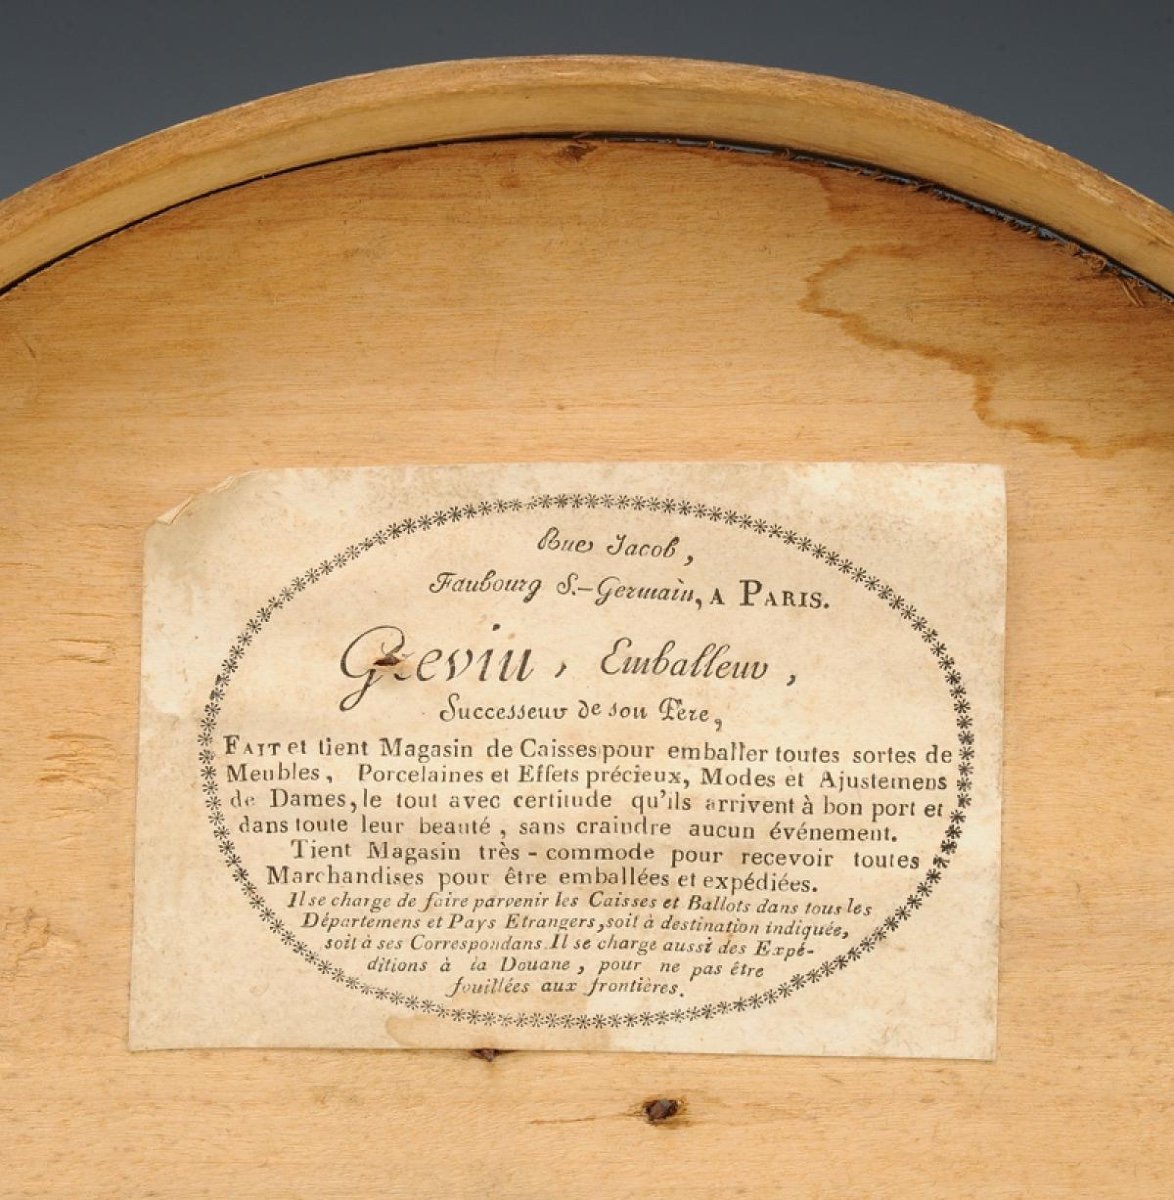 Rue Jacob,
Faubourg S.-Germain, A PARIS.
Grevin, Emballeur,
Successeur de son Père,
FAIT et tient Magasin de Caisses pour emballer toutes sortes de
Meubles, Porcelaines et Effets précieux, Modes et Ajustemens
de Dames, le tout avec certitude qu'ils arrivent à bon port et
dans toute leur beauté, sans craindre aucun événement.
Tient Magasin très-commode pour recevoir toutes
Marchandises pour être emballées et expédiées.
Il se charge de faire parvenir les Caisses et Ballots dans tous les
Départemens et Pays Etrangers, soit à destination indiquée,
soit à ses Correspondans. Il se charge aussi des Expé-
ditions à la Douane, pour ne pas être
fouillées aux frontières.